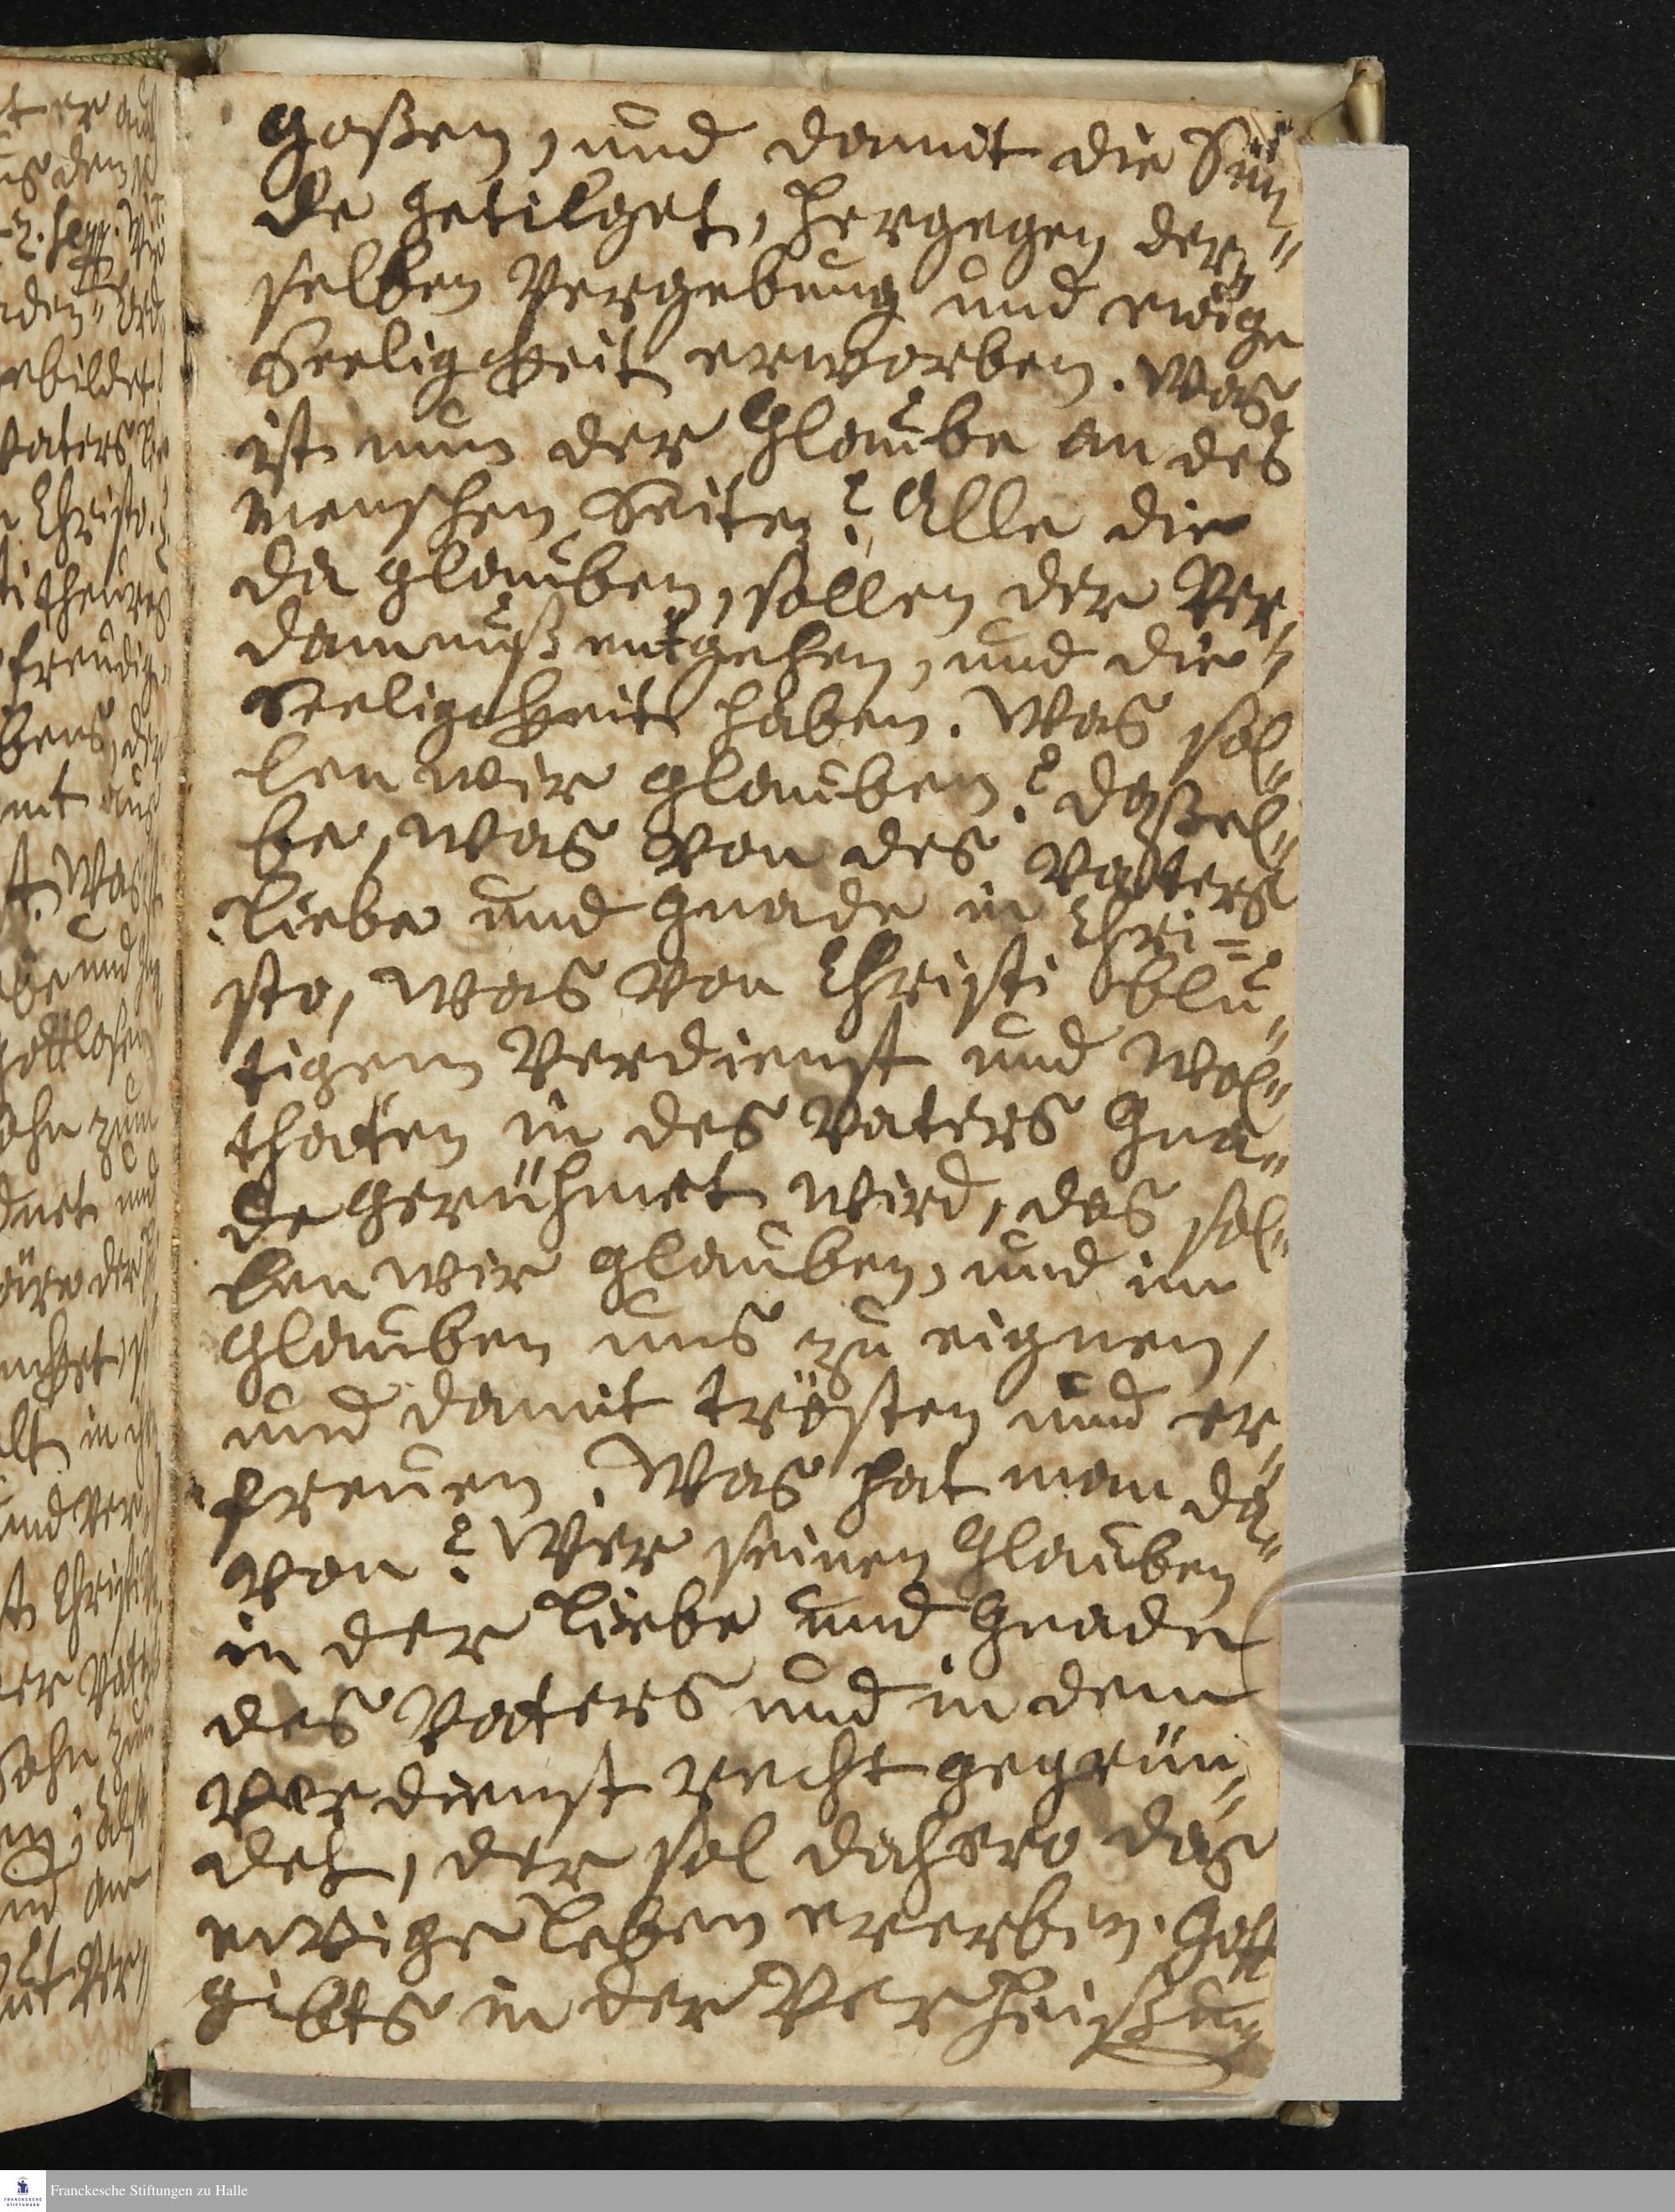 goßen, und damit die Sün-
de getilget, hergegen der-
selben Vergebung und ewige
Seeligkeit erworben. Was
ist nun der Glaube an des
Menschen Seiten? Alle die
da glauben, sollen der Ver-
damnuß entgehen, und die
Seeligkeit haben. Was sol-
len wir glauben? Dassel-
be, was von des Vatters
Liebe und Gnade in Chri=
sto, was von Christi blu-
tigem Verdienst und Wol-
thaten in des Vaters Gna-
de gerühmet wird, das sol-
len wir glauben, und im
Glauben uns zu eignen,
und damit trösten und er-
freuen. Was hat man da-
von? Wer seinen Glauben
in der Liebe und Gnade
des Vaters und in dem
Verdienst recht gegrün-
det, der sol dahero das
ewige Leben ererben. Gott
gibts in der Verheißung
Franckesche Stiftungen zu Halle